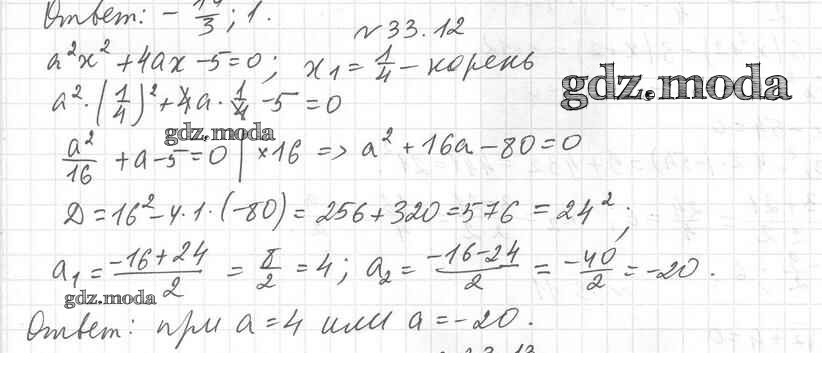 Ответ: - /3; 1.
№33.12
a²x² + 4ax - 5 = 0; x₁ = 1/4 - корень
gdz.moda
a² · (1/4)² + 4a · 1/4 - 5 = 0
gdz.moda
a²/16 + a - 5 = 0 | ×16 => a² + 16a - 80 = 0
Д = 16² - 4 · 1 · (-80) = 256 + 320 = 576 = 24²;
a₁ = (-16 + 24)/2 = 8/2 = 4; a₂ = (-16 - 24)/2 = -40/2 = -20.
gdz.moda
Ответ: при a = 4 или a = -20.